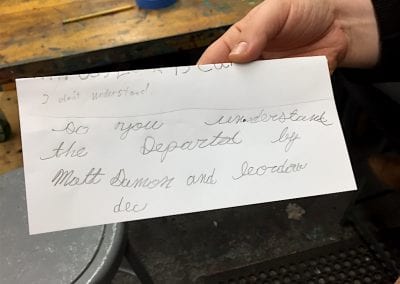 I don't understand.
Do you understand
the Departed by
Matt Damon and leordow
dec